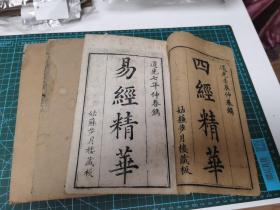 道光七年仲春鐫
四經精華
姑蘇步月樓藏板
道光七年仲春鐫
易經精華
姑蘇步月樓藏板